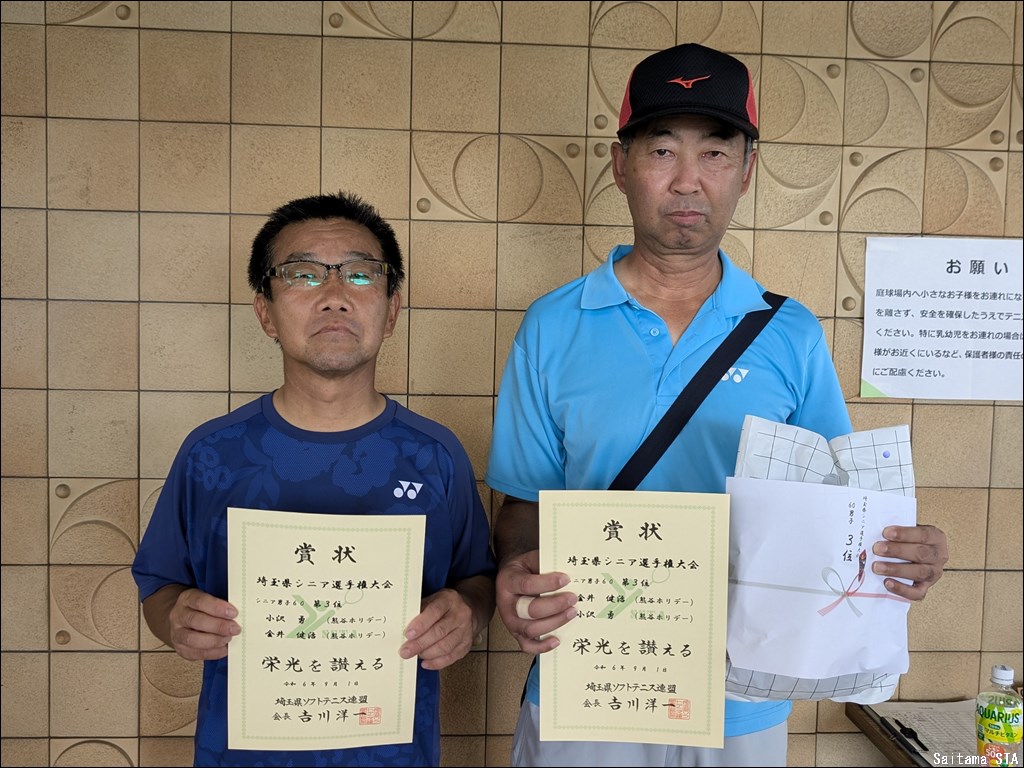 賞状
埼玉県シニア選手権大会
シニア男子60 第3位
小沢 勇 (熊谷ホリデー)
金井 健浩 (熊谷ホリデー)
栄光を讃える
令和 6年 9月 1日
埼玉県ソフトテニス連盟
会長 吉川洋一
賞状
埼玉県シニア選手権大会
ニア男子60 第3位
金井 健浩 (熊谷ホリデー)
小沢 勇 (熊谷ホリデー)
栄光を讃える
令和 6年 9月 1日
埼玉県ソフトテニス連盟
会長 吉川洋一
埼玉県シニア選手権大会
60男子 3位
お願い
庭球場内へ小さなお子様をお連れにな
を離さず、安全を確保したうえでテニ
ください。特に乳幼児をお連れの場合
様がお近くにいるなど、保護者様の責任の
にご配慮ください。
AQUARIUS
Saitama STA